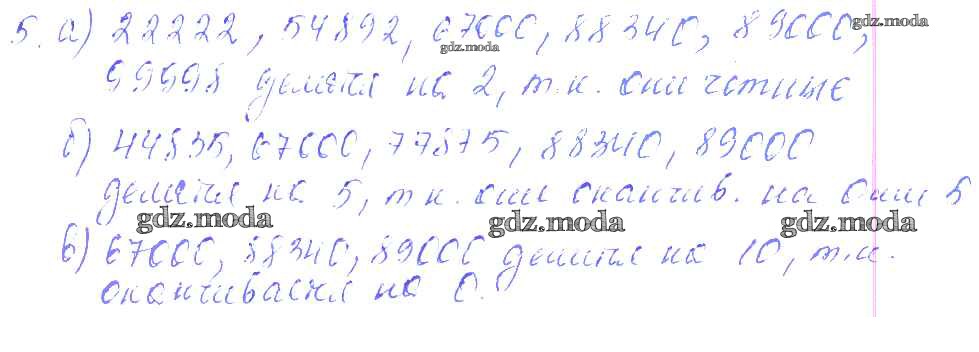 5. а) 22222, 54892, 67000, 88340, 89000,
99998 делятся на 2, т.к. они чётные
б) 44835, 67000, 77875, 88340, 89000
делятся на 5, т.к. они оканчив. на 0 или 5
в) 67000, 88340, 89000 делятся на 10, т.к.
оканчиваются на 0.
gdz.moda
gdz.moda
gdz.moda
gdz.moda
gdz.moda